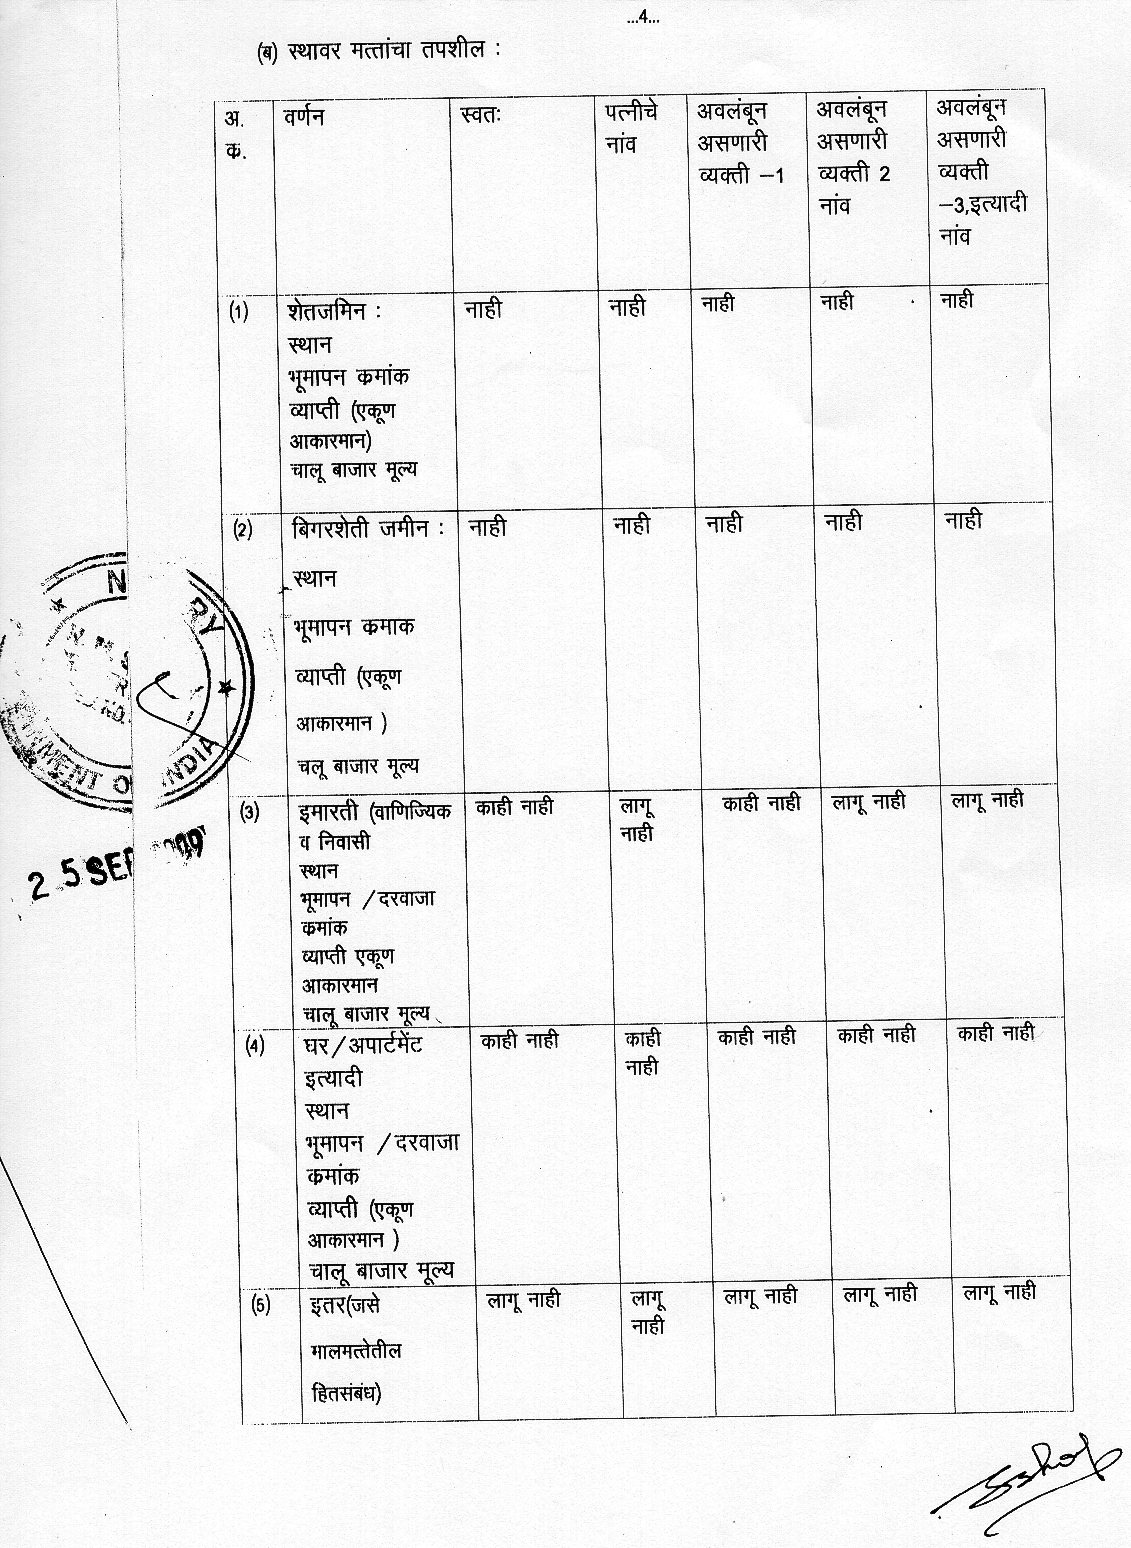 ...4...
(ब) स्थावर मत्तांचा तपशील :
अ. क.
वर्णन
स्वतः
पत्नीचे नांव
अवलंबून असणारी व्यक्ती –1
अवलंबून असणारी व्यक्ती 2 नांव
अवलंबून असणारी व्यक्ती –3,इत्यादी नांव
(1) शेतजमिन : नाही नाही नाही नाही नाही
स्थान
भूमापन कमांक
व्याप्ती (एकूण
आकारमान)
चालू बाजार मूल्य
(2) बिगरशेती जमीन : नाही नाही नाही नाही नाही
स्थान
भूमापन कमाक
व्याप्ती (एकूण
आकारमान )
चलू बाजार मूल्य
(3) इमारती (वाणिज्यिक काही नाही लागू नाही काही नाही लागू नाही लागू नाही
व निवासी
स्थान
भूमापन /दरवाजा
कमांक
व्याप्ती एकूण
आकारमान
चालू बाजार मूल्य
(4) घर/अपार्टमेंट काही नाही काही नाही काही नाही काही नाही काही नाही
इत्यादी
स्थान
भूमापन /दरवाजा
कमांक
व्याप्ती (एकूण
आकारमान )
चालू बाजार मूल्य
(5) इतर(जसे लागू नाही लागू नाही लागू नाही लागू नाही लागू नाही
मालमत्तेतील
हितसंबंध)
INDIA
25 SEP